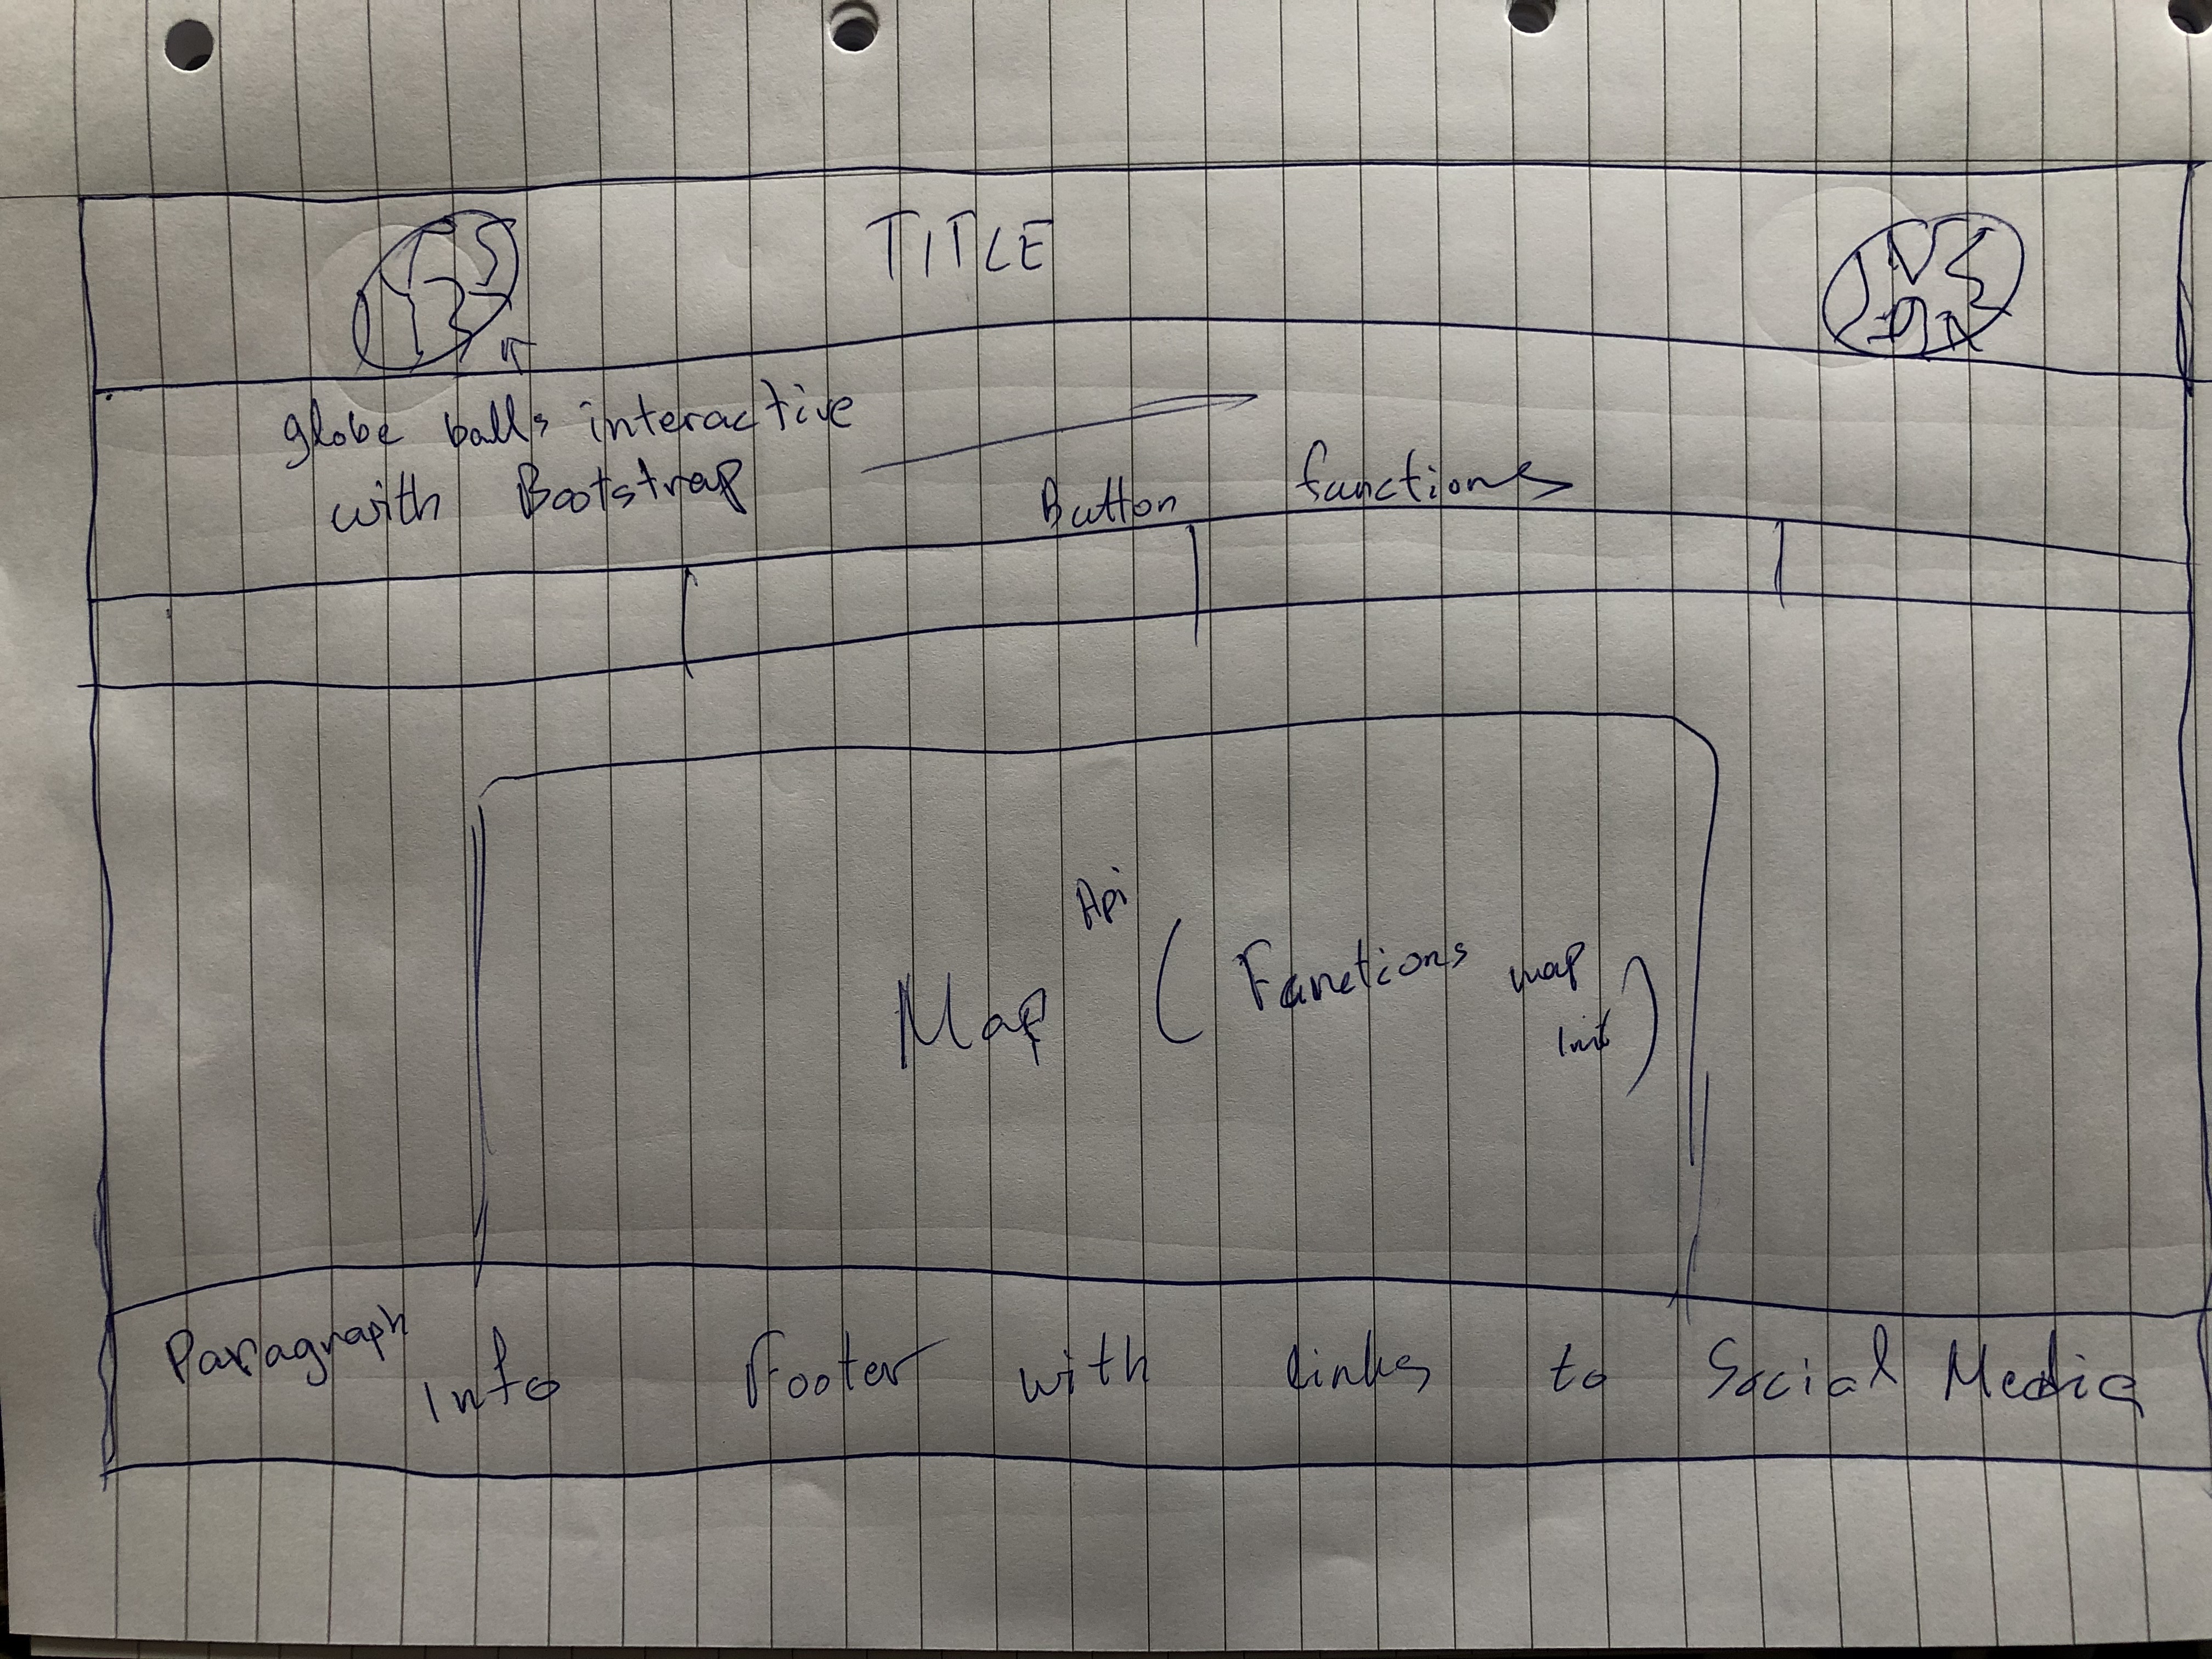 TITLE
globe balls interactive
with Bootstrap
Button functions
Api
Map ( Functions map
Init )
Paragraph
Info Footer with links to Social Media